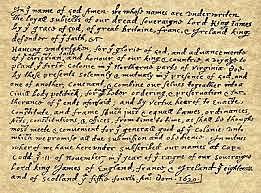 In yͤ name of god Amen. We whose names are vnderwriten,
the loyall subjects of our dread soueraigne Lord King James
by yͤ grace of god, of great britaine, franc, & Ireland king,
defender of yͤ faith, &c
Haueing vndertaken, for yͤ glorie of god, and aduancemente
of yͤ christian and honour of our king & countrie, a voyage to
plant yͤ first colonie in yͤ Northerne parts of Virginia. doe
by these presents solemnly & mutualy in yͤ presence of god, and
one of another, couenant, & combine our selues togeather into a
ciuill body politick; for better ordering, & preseruation & fur=
therance of yͤ ends aforesaid; and by vertue hearof to enacte,
constitute, and frame shuch just & equall lawes, ordinances,
acts, constitutions, & offices, from time to time, as shall be thought
most meete & conuenient for yͤ generall good of yͤ Colonie: vnto
which we promise all due submission and obedience. In witnes
wherof we haue herevnder subscribed our names at Cape
Codd yͤ ·11· of Nouember, in yͤ year of yͤ raigne of our soueraigne
Lord king James of England, franc, & Ireland yͤ eighteenth
and of Scotland yͤ fiftie fourth. An: Dom. 1620.